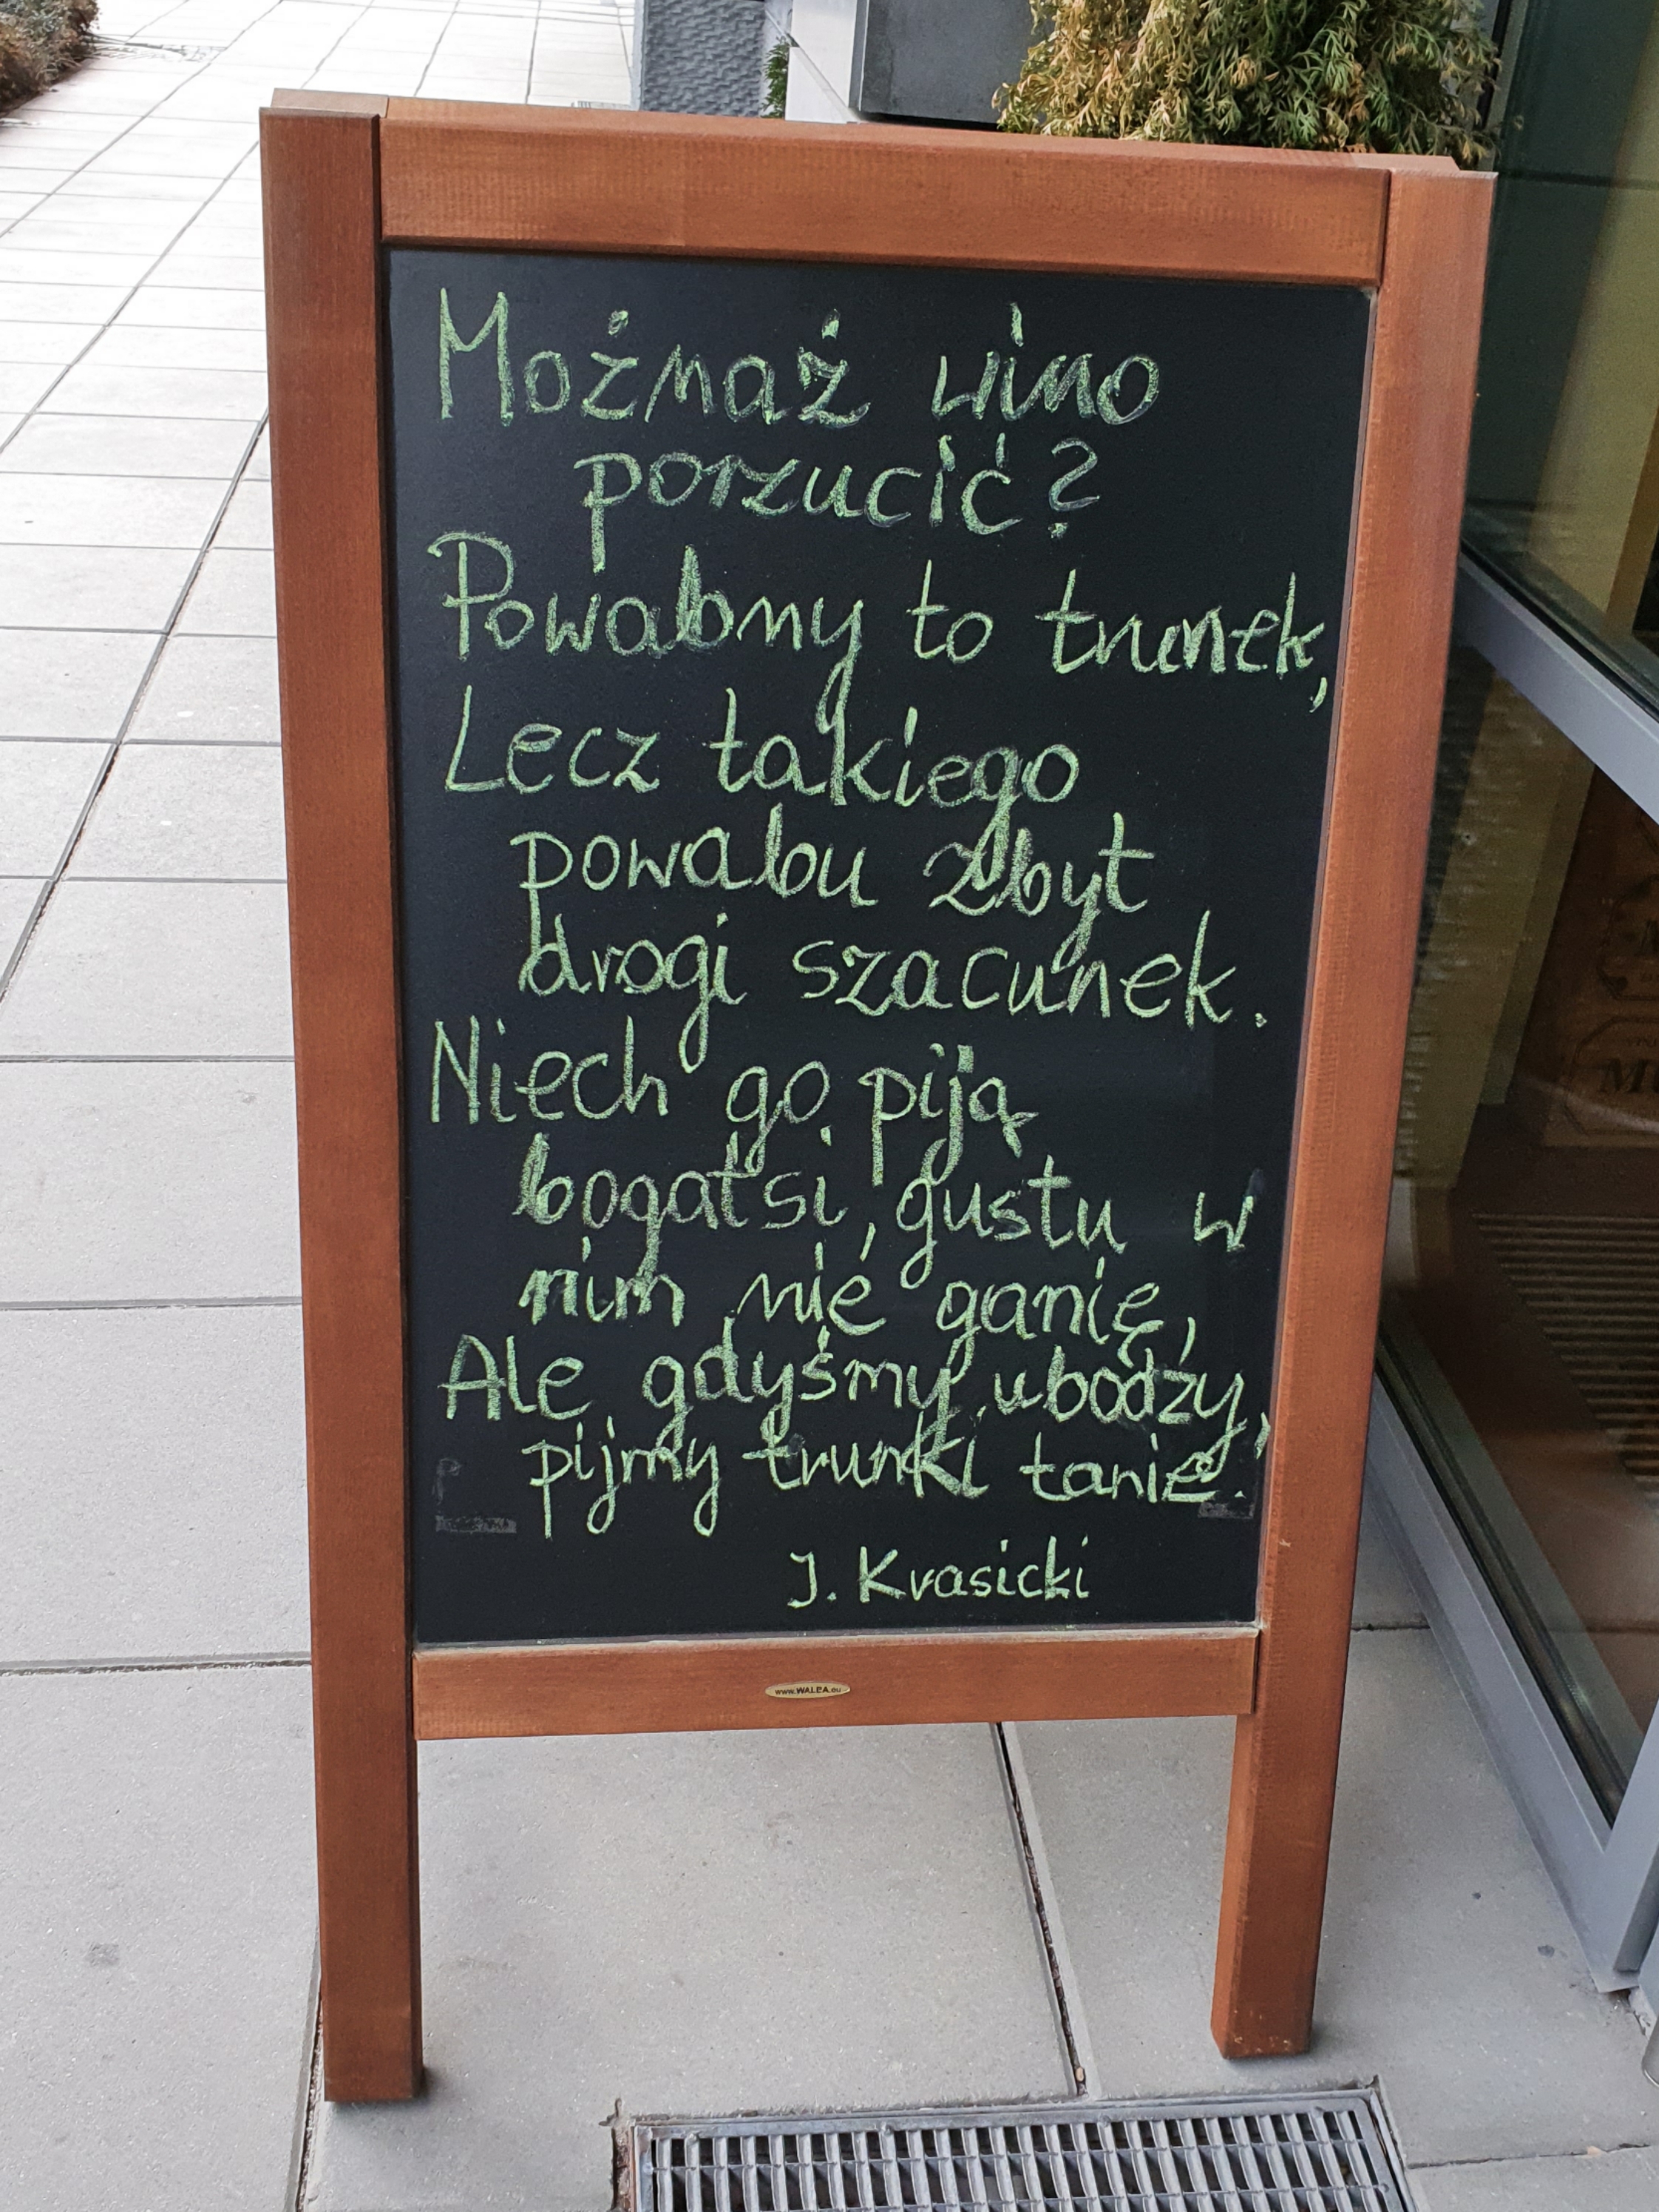 Możnaż wino
porzucić?
Powabny to trunek,
Lecz takiego
powabu zbyt
drogi szacunek.
Niech go piją
bogatsi, gustu w
nim nie ganię,
Ale gdyśmy ubodzy,
pijmy trunki tanie.
J. Krasicki
www.WALBA.eu